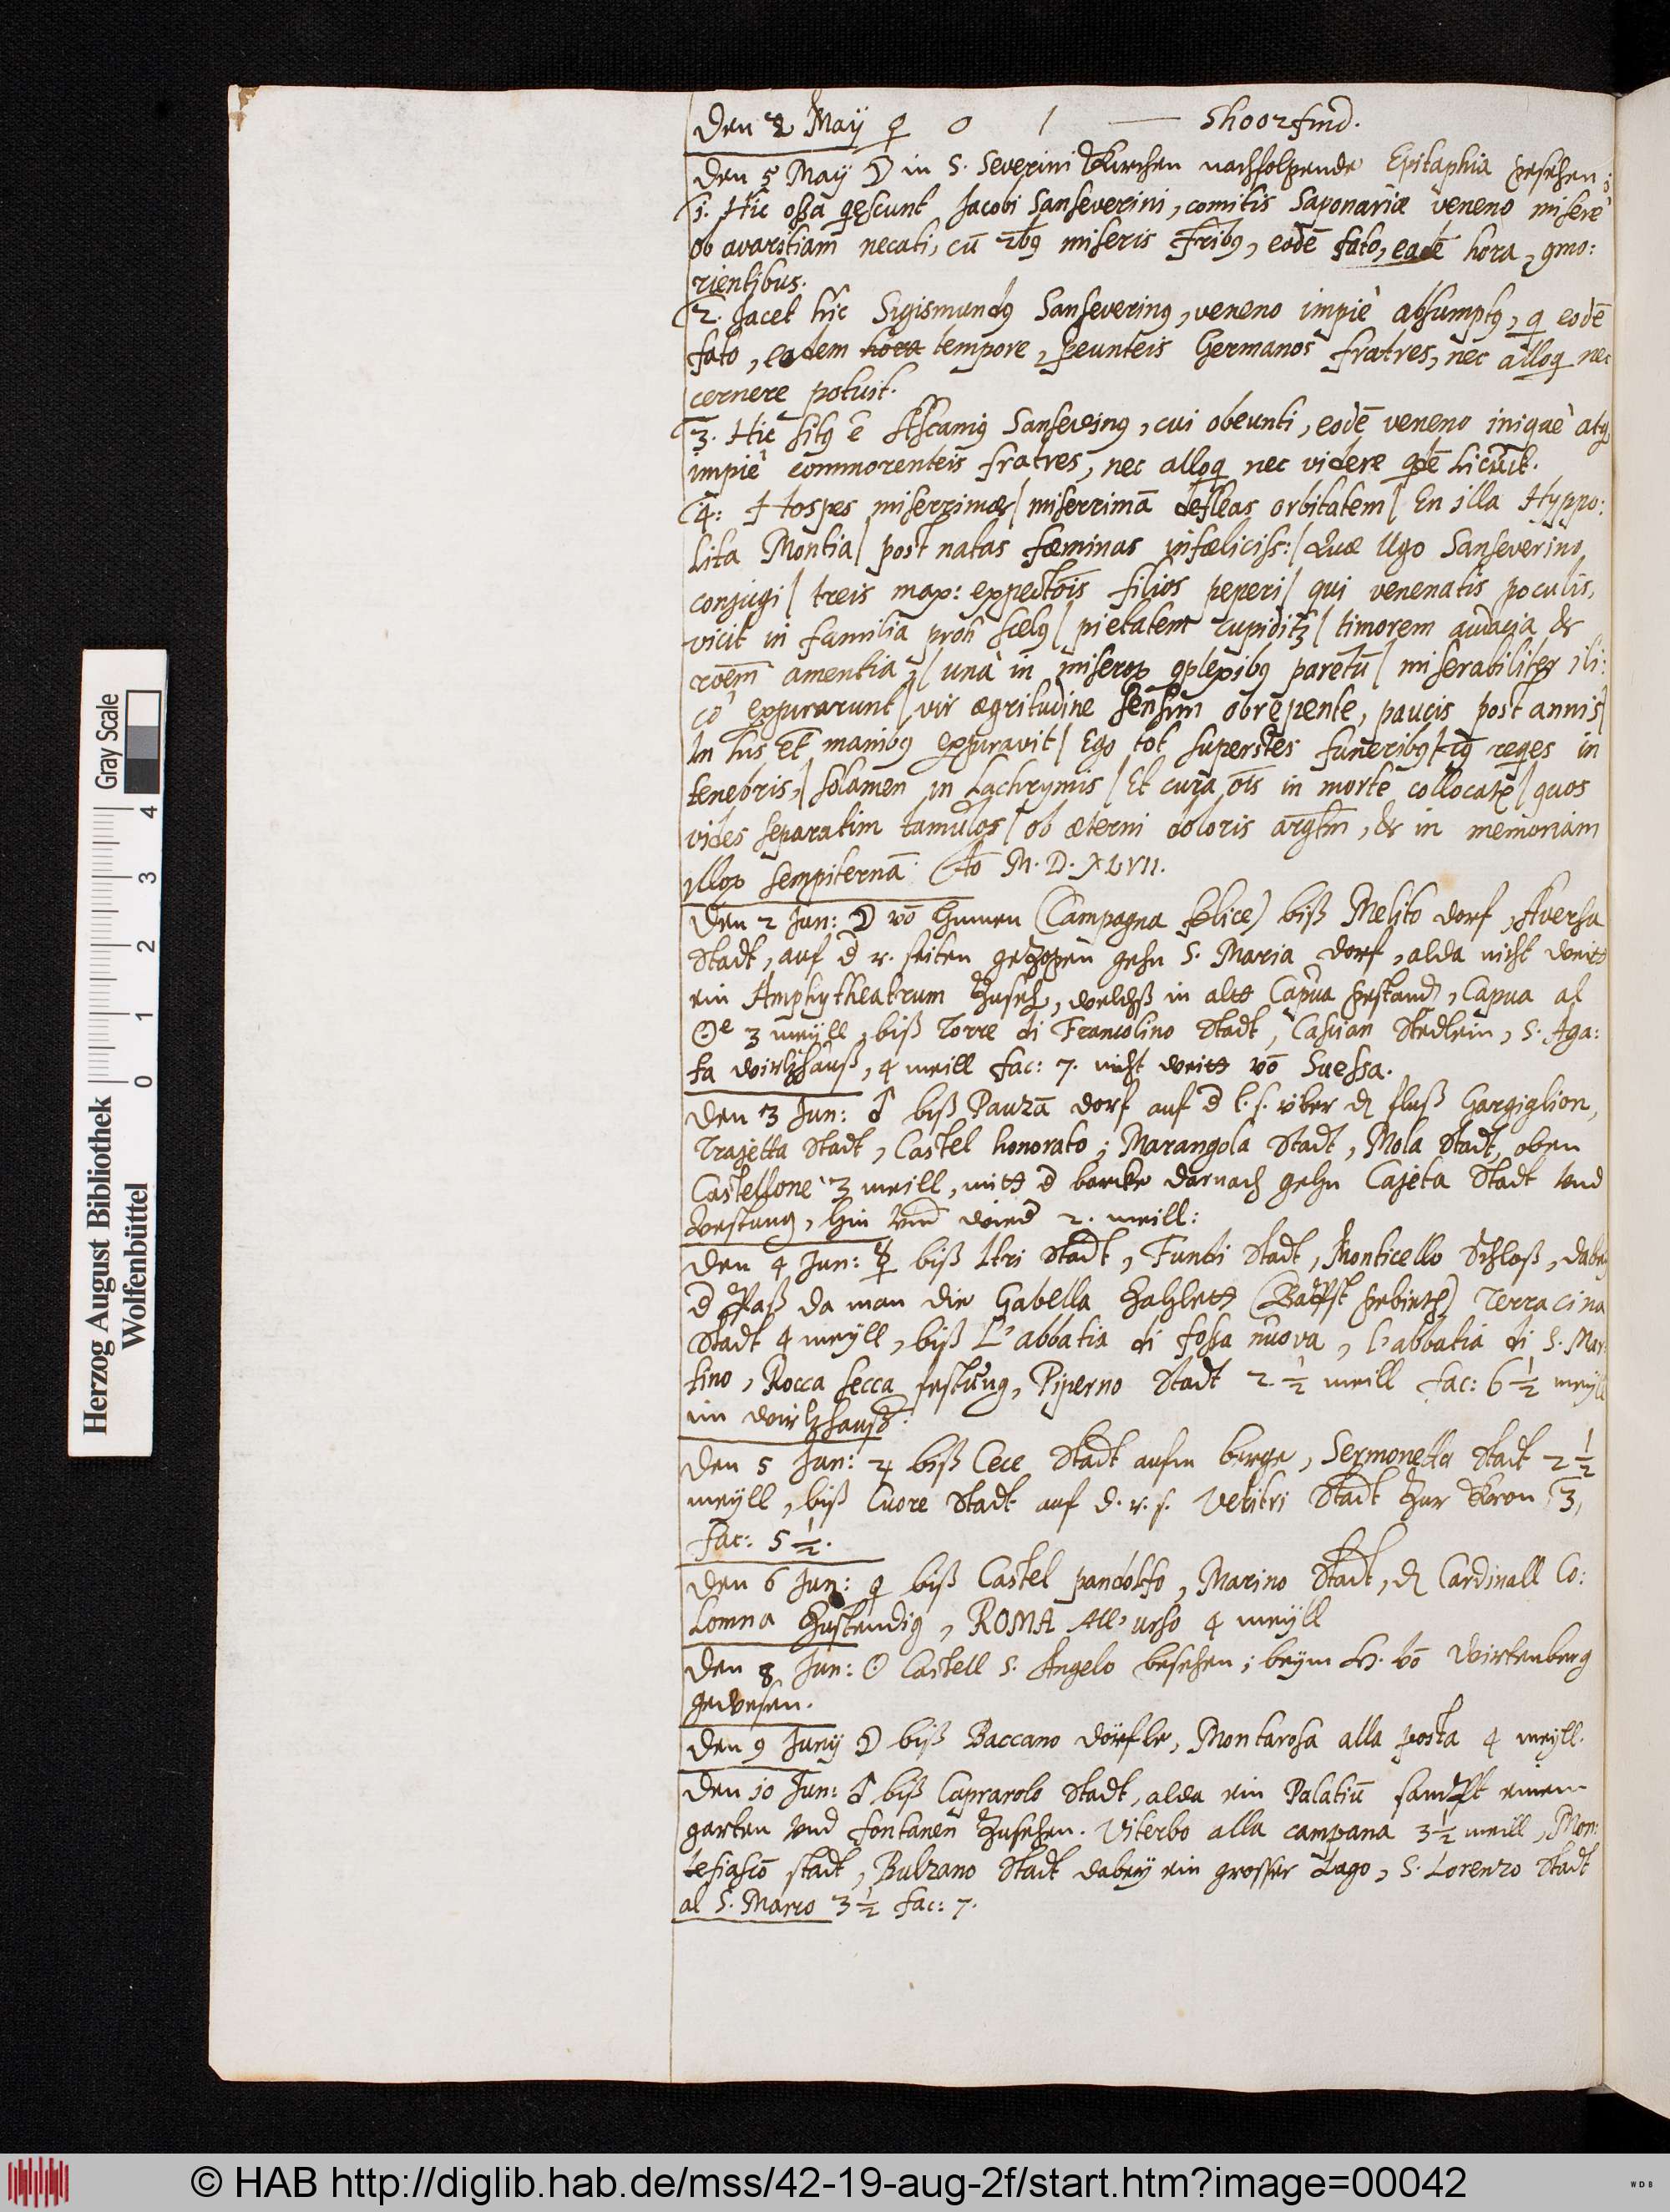 Den 2 May ♀ 0 1 —
Den 5 May ☽ in S. Severini Kirchen nachfolgende Epitaphia gesehen:
1. Hic oßa qescunt Jacobi Sanseverini, comitis Saponariæ veneno miserè
ob avaritiam necati, cū 2bꝰ miseris fribꝰ, eodē fato, eadē hora, ꝯmo:
rientibus.
2. Jacet hîc Sigismundꝰ Sanseverinꝰ, veneno impiè absumptꝰ, q eodē
fato, eodem tempore, peunteis Germanos fratres, nec alloq nec
cernere potuit.
3. Hic sitꝰ ē Ascaniꝰ Sansevinꝰ, cui obeunti, eodē veneno iniquè atq
impiè commorenteis fratres, nec alloq nec videre qdē licuit.
4: Hospes miserrimæ/ miserrimā defleas orbitatem/ En illa Hyppo:
lita Montia/ post natas fœminas infœliciss:/ Quæ Ugo Sanseverino
conjugi/ treis max: expectōis filios peperi/ qui venenatis poculis,
vicit in familia proh scelꝰ/ pietatem cupiditꝫ/ timorem audacia &
rōem amentia,/ unà in miseroꝝ ꝯplexibꝰ paretū/ miserabiliter ili:
cò expirarunt/ vir ægritudine sensim obrepente, paucis post annis/
In his et manibꝰ expiravit/ Ego tot superstes funeribꝰ/ reqes in
tenebris,/ solamen in lachrymis/ Et cura ōis in morte collocatꝝ/ quos
vides separatim tumulos/ ob æterni doloris argtm, & in memoriam
illoꝝ sempiternā. Ao M.D.XLVII.
Den 2 Jun: ☽ vō (Campagna felice) biß Melito dorf, Aversa
Stadt, auf d r. seiten gehn S. Maria dorf, alda nicht weitt
ein Amphytheatrum Zuseh, welchß in altt Capua gestand, Capua al
☉e 3 meyll, biß Torre di Francolino Stadt, Cascian Stedlein, S. Aga:
ta wirtzhauß, 4 meill fac: 7. nicht weitt vō Suessa.
Den 3 Jun: ♂ biß Pauzā dorf auf d l. s. über dē fluß Gargiglion,
Trajetta Stadt, Castel honorato, Marangola Stadt, Mola Stadt, oben
Castellone 3 meill, mitt d barcke darnach gehn Cajeta Stadt vnd
Vestung, hin vnd wied 2. meill:
Den 4 Jun: ☿ biß Itri Stadt, Fundi Stadt, Monticello Schloß, dabey
d Paß da man die Gabella zahlett (Bapst gebieth) Terracina
Stadt 4 meyll, biß L'abbatia di fossa nuova, l'abbatia di S. Mar:
tino, Rocca secca festūng, Piperno Stadt 2 1/2 meill fac: 6 1/2 meyll
im wirtzhauß.
Den 5 Jun: ♃ biß Cece Stadt aufm berge, Sermonetta Stadt 2 1/2
meyll, biß Cuore Stadt auf d. r. s. Velitri Stadt Zur Kron 3,
fac: 5 1/2.
Den 6 Jun: ♀ biß Castel pandolfo, Marino Stadt, dē Cardinall Co:
lomna Zustendig, ROMA All' urso 4 meyll
Den 8 Jun: ☉ Castell S. Angelo besehen; beym H. vō Wirtenberg
gewesen.
Den 9 Juny ☽ biß Baccano dörfle, Montarosa alla posta 4 meyll.
Den 10 Jun: ♂ biß Caprarolo Stadt, alda ein Palatiū sampt einem
garten vnd fontanen Zusehen. Viterbo alla campana 3 1/2 meill, Mon:
tefiascō stadt, Bulzano Stadt dabey ein grosser Lago, S. Lorenzo Stadt
al S. Marco 3 1/2 fac: 7.
Herzog August Bibliothek
Wolfenbüttel
Gray Scale
0 1 2 3 4
© HAB http://diglib.hab.de/mss/42-19-aug-2f/start.htm?image=00042
WDB